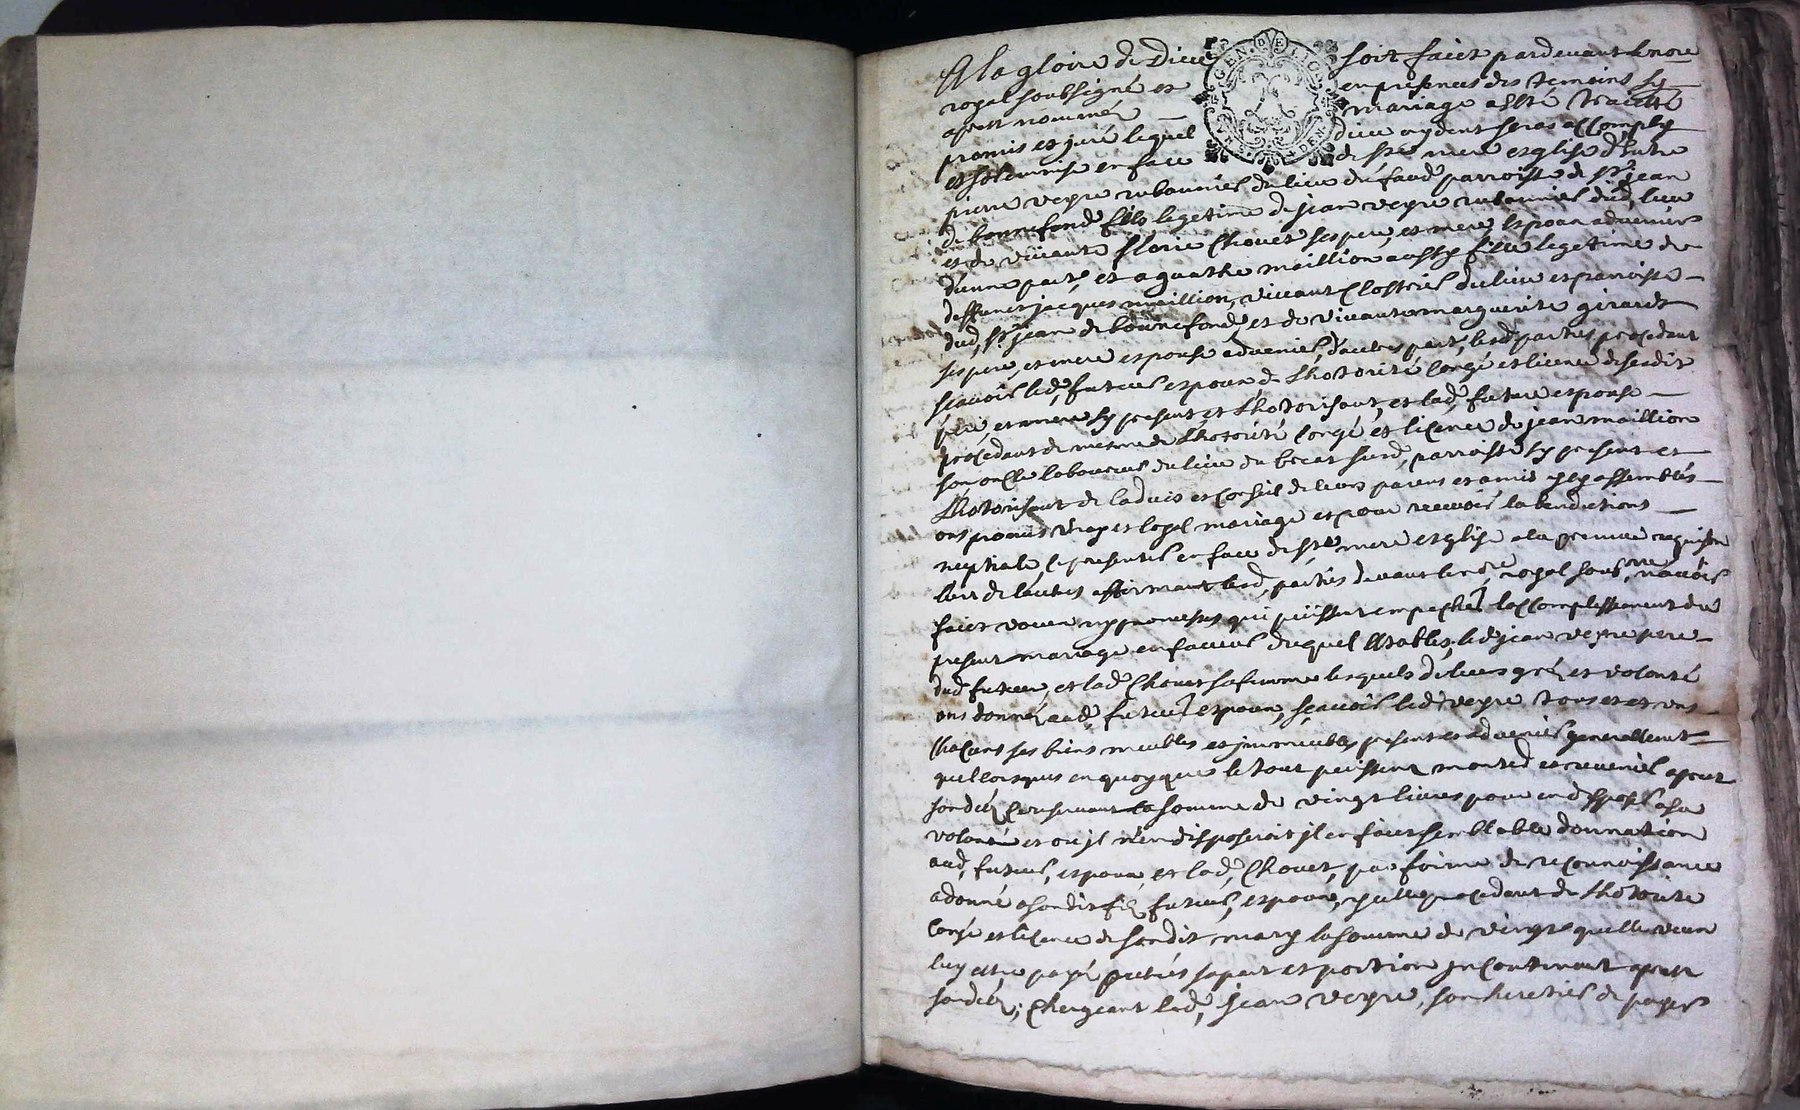 A la gloire de Dieu soit faict pardevant le nore
royal soubsigné et en presences des temoins sy
apres nommés mariage a esté traicté
promis et juré lequel dieu aydent seras accomply
et solemnise en face de ste mere esglise d'entre
pierre veyre rubannier du lieu de faud parroisse de st jean
de bonnefond fils legetime de jean veyre rubannier dud lieu
et de vivante florie Chovet ses pere, et mere, espoux advenir
d'une part, et agathe maillion aussy fille legetime de
deffunct jacques maillion, vivant closrier du lieu et parroisse
dud, st jean de bonnefond, et de vivante marguerite girardet
ses pere, et mere espouse advenir, d'autre part, lesd parties procedant
scavoir led, futeur espoux de Lhotorité congé et licence de sesdit
pere, et mere sy present et Lhotorisant, et lad, future espouse
procedant de mesme de Lhotorité congé et licence de jean maillion
son oncle laboureur du lieu du susd, parroisse sy present et
Lhotorisant de ladvis et conseil de leurs parens et amis assemblés
ont promis vray et loyal mariage et pour recevoir la benedictions
neptiale ce presenter en face de ste mere esglise a la premiere requisition
l'un de lautres affirmant lesd, parties devant le nore royal soubne n'avoir
faict voeux ny promesses qui puissent empecher laccomplissement du
present mariage en faveur duquel establis, led jean veyre pere
dud futeur, et lad Chovet sa femme lesquels de leurs gré, et volonté
ont donné, aud, futeur espoux, scavoir led veyre tous et et uns
chacuns ses biens meubles et jmmeubles present et advenir generallement
quelconques en quoy que le tout puissent monter et revenir apres
son decés ce reservant la somme de vingt livres pour en disposer a sa
volonté et ou jl n'en disposeroit jl en faict semblable donnation
aud, futeur, espoux, et lad, Chovet, par forme de reconnoissance
a donné a sondit fils futeur, espoux, procedant de Lhotorite
congé et licence de sondit mary la somme de vingt quelle veux
luy estre payé sa part et portion jncontinent apres
son decés, chargeant led, jean veyre, son heretier de payer